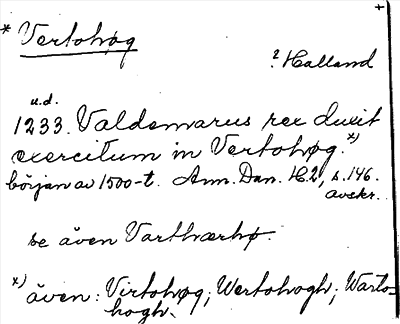 +
* Vertohøg
? Halland
u.d.
1233. Valdemarus rex duxit
exercitum in Vertohøg.*)
början av 1500-t. Ann. Dan. H.2, s. 146.
avskr.
se även Varthærhø.
x) även: Virtohøg; Wertohogh; Warto-
hogh.